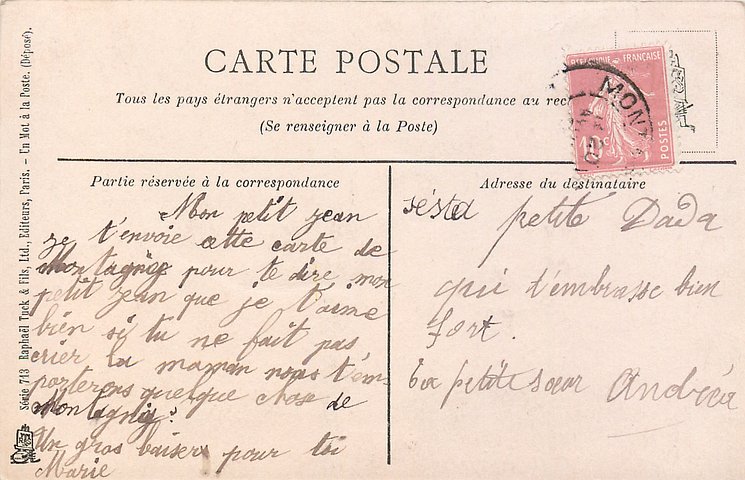 CARTE POSTALE
Tous les pays étrangers n'acceptent pas la correspondance au rec
(Se renseigner à la Poste)
REPUBLIQUE FRANÇAISE
POSTES
10c
MONT
Partie réservée à la correspondance
Mon petit jean
je t'envoie cette carte de
Montagnic pour te dire mon
petit jean que je t'aime
bien si tu ne fait pas
crier ta maman nous t'em
porterons quelque chose de
Montagnic.
Un gros baisers pour toi
Marie
Adresse du destinataire
séstd petite Dada
qui t'embrasse bien
fort.
ta petite sœur Andréa
Série 713 Raphaël Tuck & Fils, Ltd., Editeurs, Paris. - Un Mot à la Poste. (Déposé).